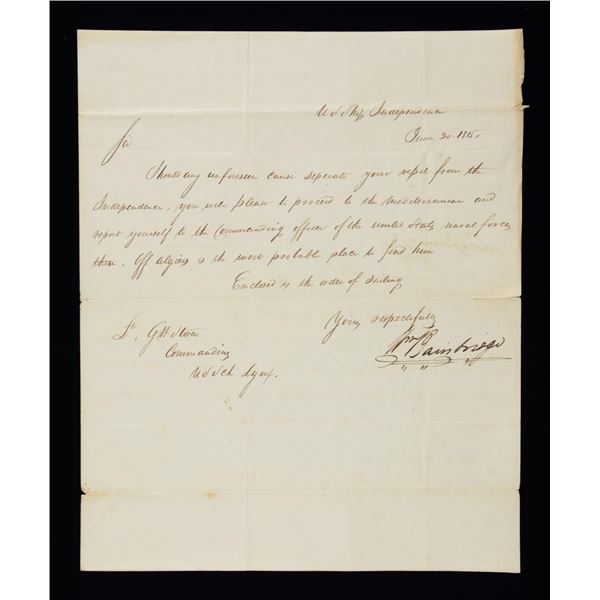 U S Ship Independence
June 30. 1815.
Sir
Should any unforseen cause seperate your vessel from the
Independence, you will please to proceed to the Mediterranean and
report yourself to the Commanding officer of the United States naval forces
there. Off Algiers is the most probable place to find him
Enclosed is the order of Sailing
Yours respectfully
Wm Bainbridge
Lt. G W Storer
Commanding
U S Sch Lynx.